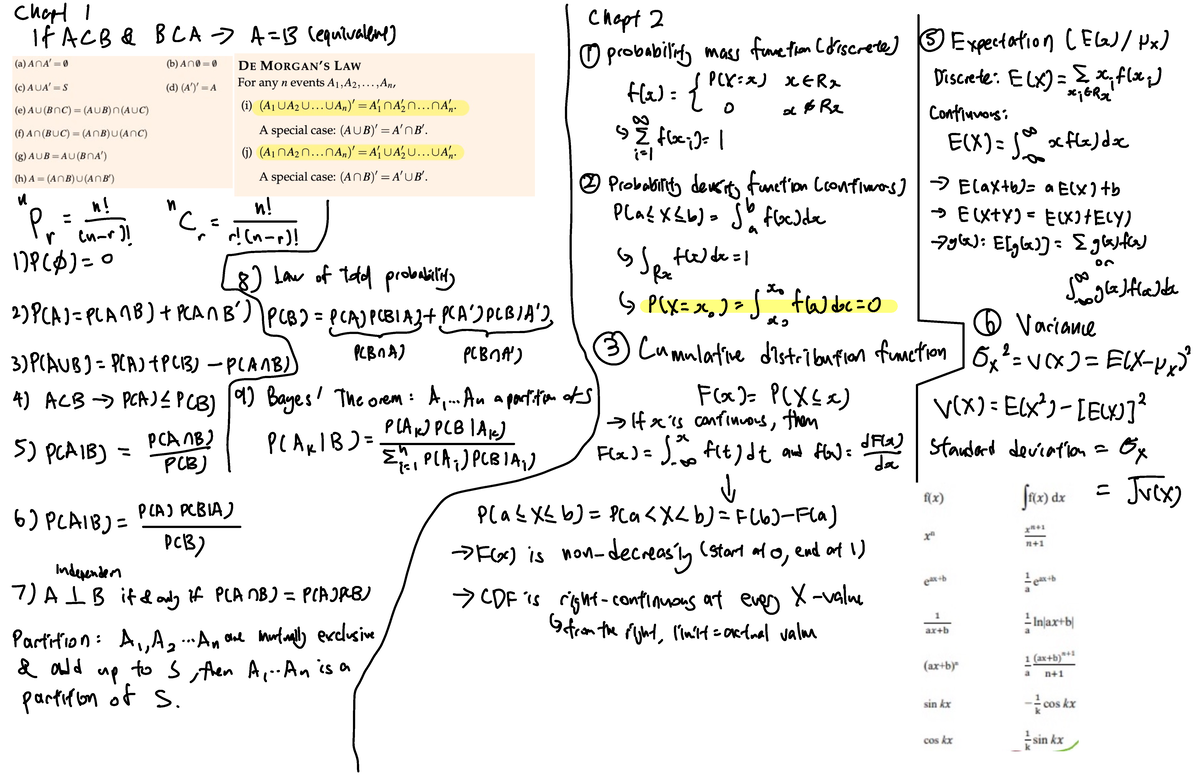 Chapt 1
If A⊂B & B⊂A → A=B (equivalent)
(a) A∩A′ = ∅
(b) A∩∅ = ∅
(c) A∪A′ = S
(d) (A′)′ = A
(e) A∪(B∩C) = (A∪B)∩(A∪C)
(f) A∩(B∪C) = (A∩B)∪(A∩C)
(g) A∪B = A∪(B∩A′)
(h) A = (A∩B)∪(A∩B′)
DE MORGAN'S LAW
For any n events A₁,A₂,…,Aₙ,
(i) (A₁∪A₂∪…∪Aₙ)′ = A₁′∩A₂′∩…∩Aₙ′.
A special case: (A∪B)′ = A′∩B′.
(j) (A₁∩A₂∩…∩Aₙ)′ = A₁′∪A₂′∪…∪Aₙ′.
A special case: (A∩B)′ = A′∪B′.
ⁿPᵣ = n!/(n-r)!
ⁿCᵣ = n!/r!(n-r)!
1) P(∅) = 0
2) P(A) = P(A∩B) + P(A∩B′)
3) P(A∪B) = P(A) + P(B) - P(A∩B)
4) A⊂B → P(A) ≤ P(B)
5) P(A|B) = P(A∩B)/P(B)
6) P(A|B) = P(A) P(B|A)/P(B)
Independent
7) A ⊥ B if & only if P(A∩B) = P(A)P(B)
Partition: A₁, A₂ ... Aₙ are mutually exclusive
& add up to S, then A₁...Aₙ is a
partition of S.
8) Law of total probability
P(B) = P(A)P(B|A) + P(A′)P(B|A′)
P(B∩A) P(B∩A′)
9) Bayes' Theorem: A₁...An a partition of S
P(Aₖ|B) = P(Aₖ)P(B|Aₖ)/Σⁿᵢ₌₁ P(Aᵢ)P(B|Aᵢ)
Chapt 2
① probability mass function (discrete)
f(x) = { P(X=x) x∈Rx
0 x∉Rx
↳ Σ^∞ᵢ₌₁ f(xᵢ) = 1
② Probability density function (continuous)
P(a≤X≤b) = ∫ₐᵇ f(x)dx
↳ ∫_Rx f(x)dx = 1
↳ P(X=x₀) = ∫_x₀^x₀ f(x)dx = 0
③ Cumulative distribution function
F(x) = P(X≤x)
→ If x is continuous, then
F(x) = ∫_-∞^x f(t)dt and f(x) = dF(x)/dx
↓
P(a≤X≤b) = P(a<X<b) = F(b)-F(a)
→ F(x) is non-decreasing (start at 0, end at 1)
→ CDF is right-continuous at every X-value
↳ from the right, limit = actual value
⑤ Expectation (E(x)/μx)
Discrete: E(X) = Σ_{xᵢ∈Rx} xᵢf(xᵢ)
Continuous:
E(X) = ∫_-∞^∞ x f(x)dx
→ E(aX+b) = aE(X)+b
→ E(X+Y) = E(X)+E(Y)
→ g(x): E[g(x)] = Σ g(x)f(x)
or
∫_∞^∞ g(x)f(x)dx
⑥ Variance
σx² = V(X) = E(X-μx)²
V(X) = E(X²) - [E(X)]²
Standard deviation = σx
= √V(X)
f(x) ∫f(x) dx
xⁿ xⁿ⁺¹/n+1
e^(ax+b) 1/a e^(ax+b)
1/ax+b 1/a ln|ax+b|
(ax+b)ⁿ 1/a (ax+b)ⁿ⁺¹/n+1
sin kx -1/k cos kx
cos kx 1/k sin kx